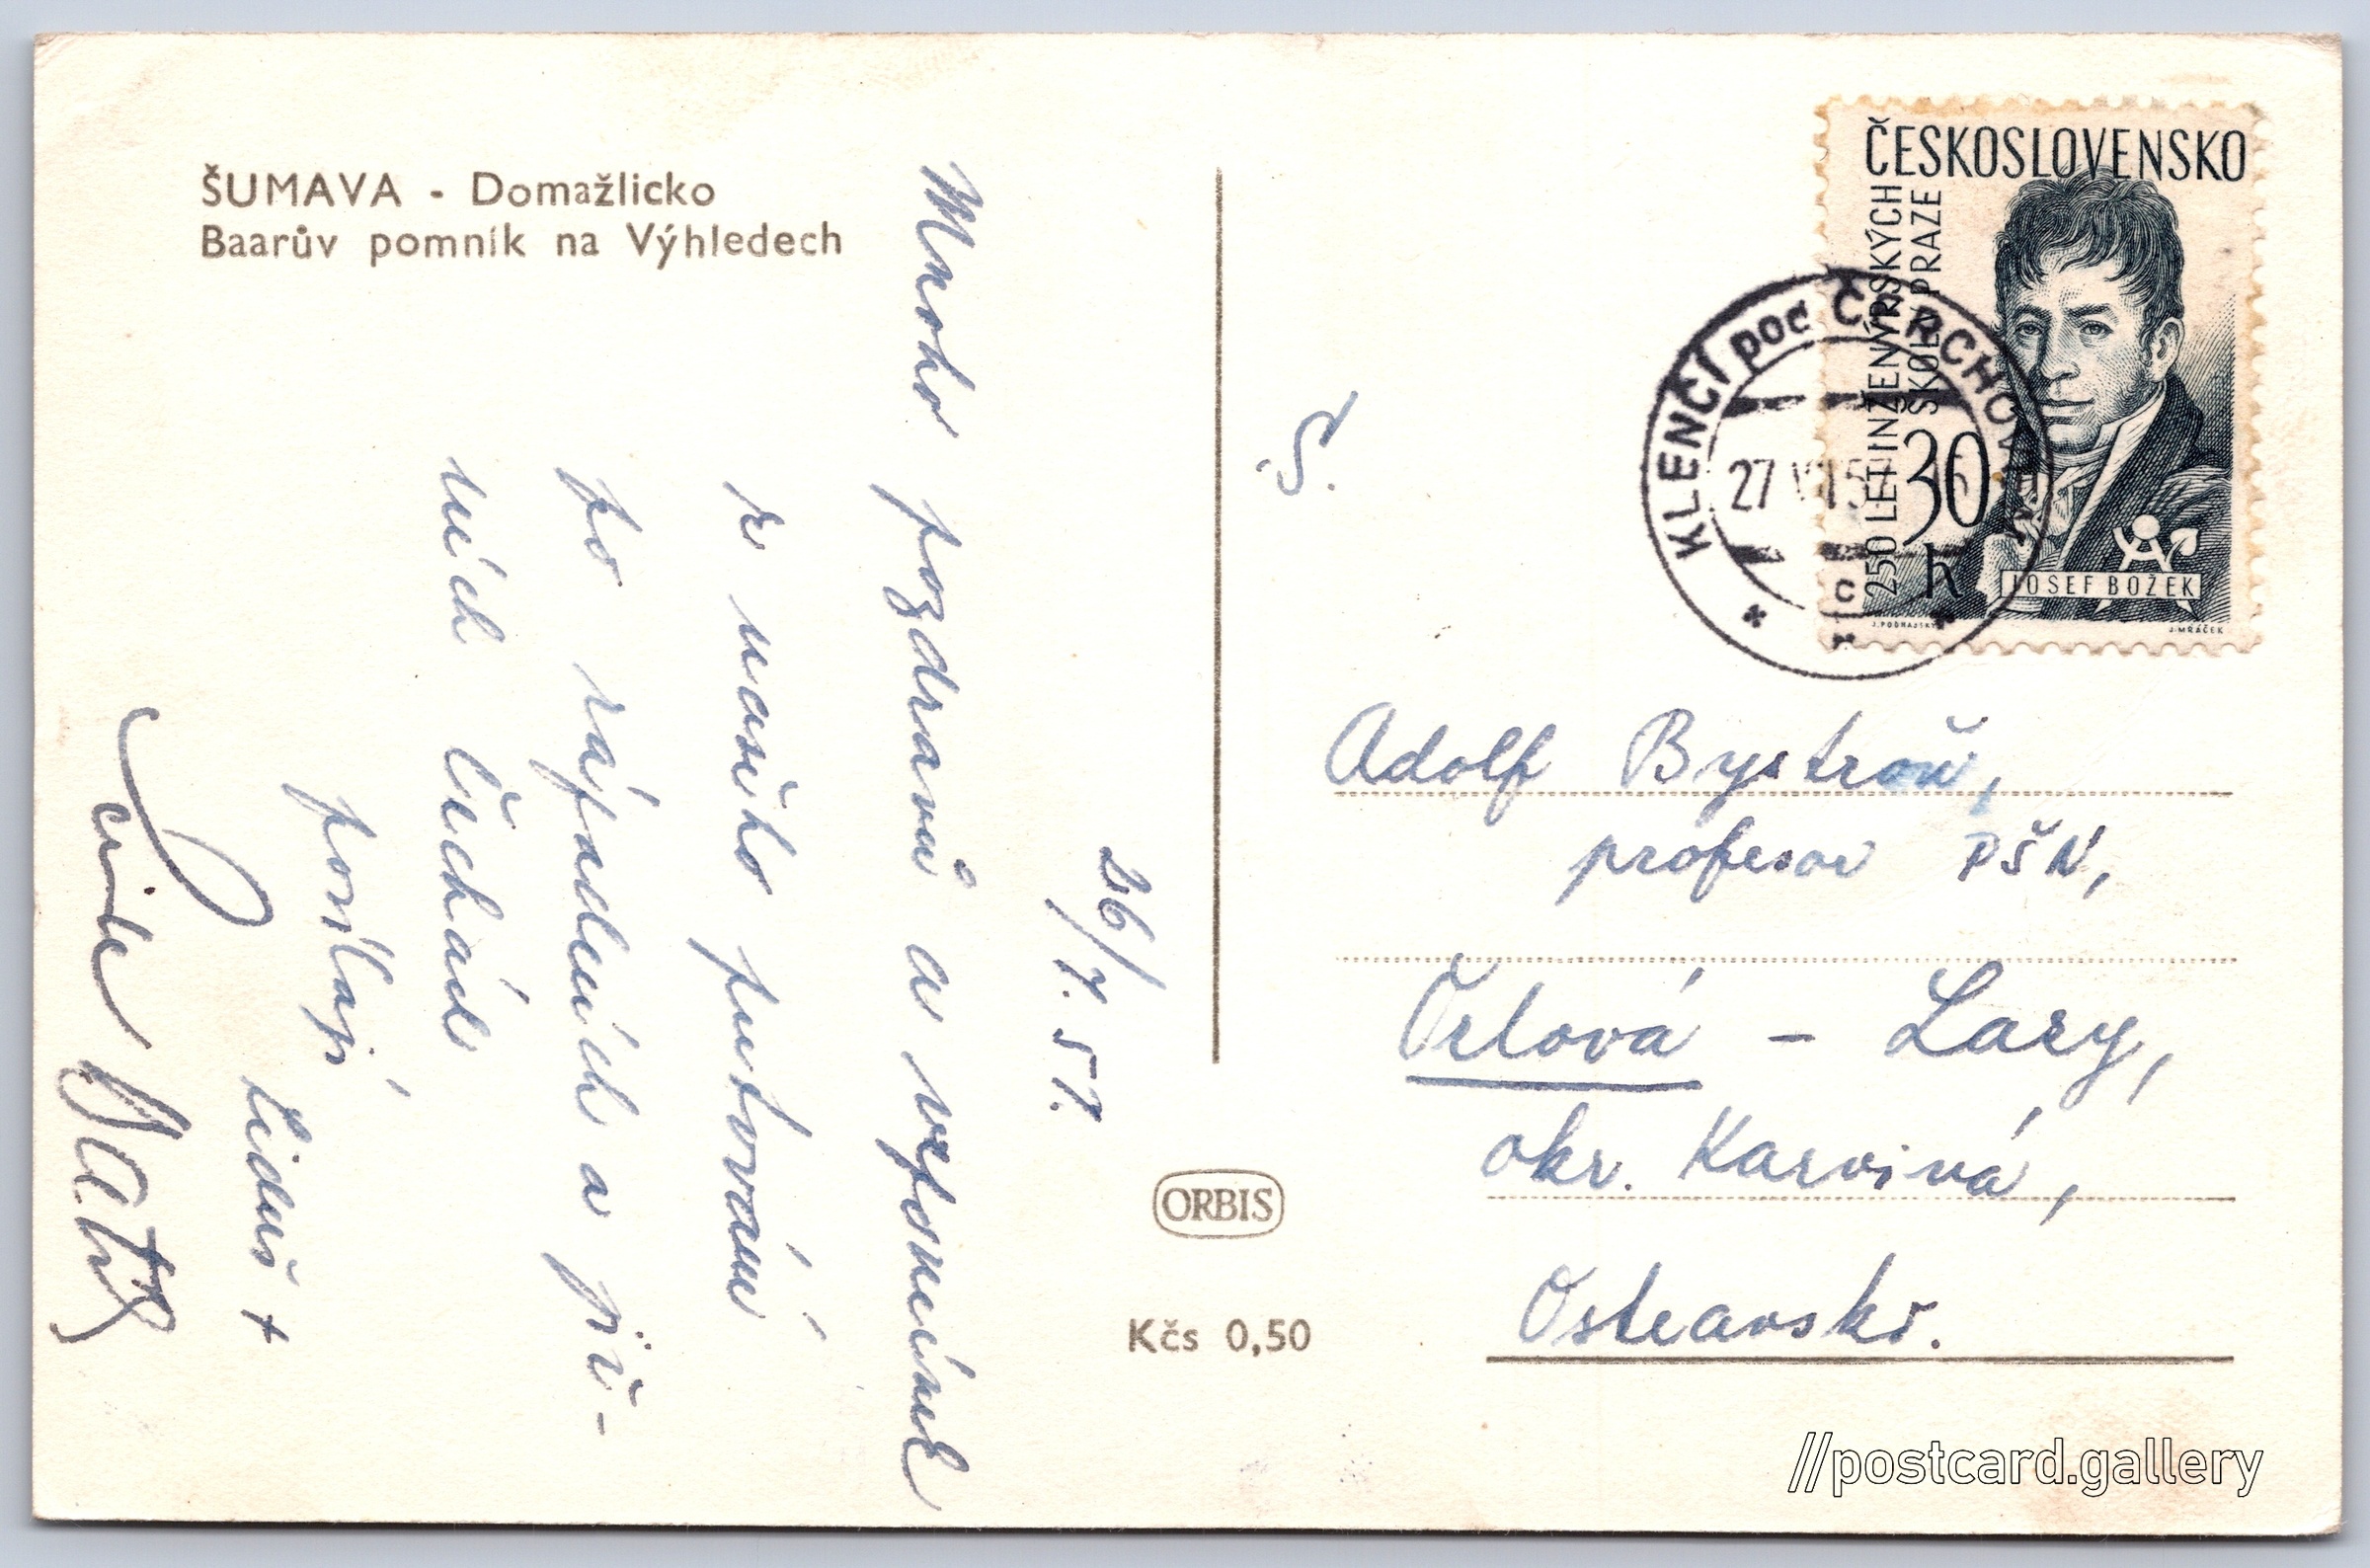 ŠUMAVA - Domažlicko
Baarův pomník na Výhledech
26/7. 57.
Mnoho pozdravů a vzpomínek
z našeho putování
po západních a již-
ních Čechách
posílají
Liduš +
ORBIS
Kčs 0,50
ČESKOSLOVENSKO
250 LET INŽENÝRSKÝCH
ŠKOL V PRAZE
30
h
JOSEF BOŽEK
J. PODHAJSKÝ
J. MRÁČEK
KLENČÍ pod ČERCHOVEM
27 VII 57
c
Adolf Bystroň,
profesor PŠN,
Orlová – Lazy,
okr. Karviná,
Ostravsko.
//postcard.gallery